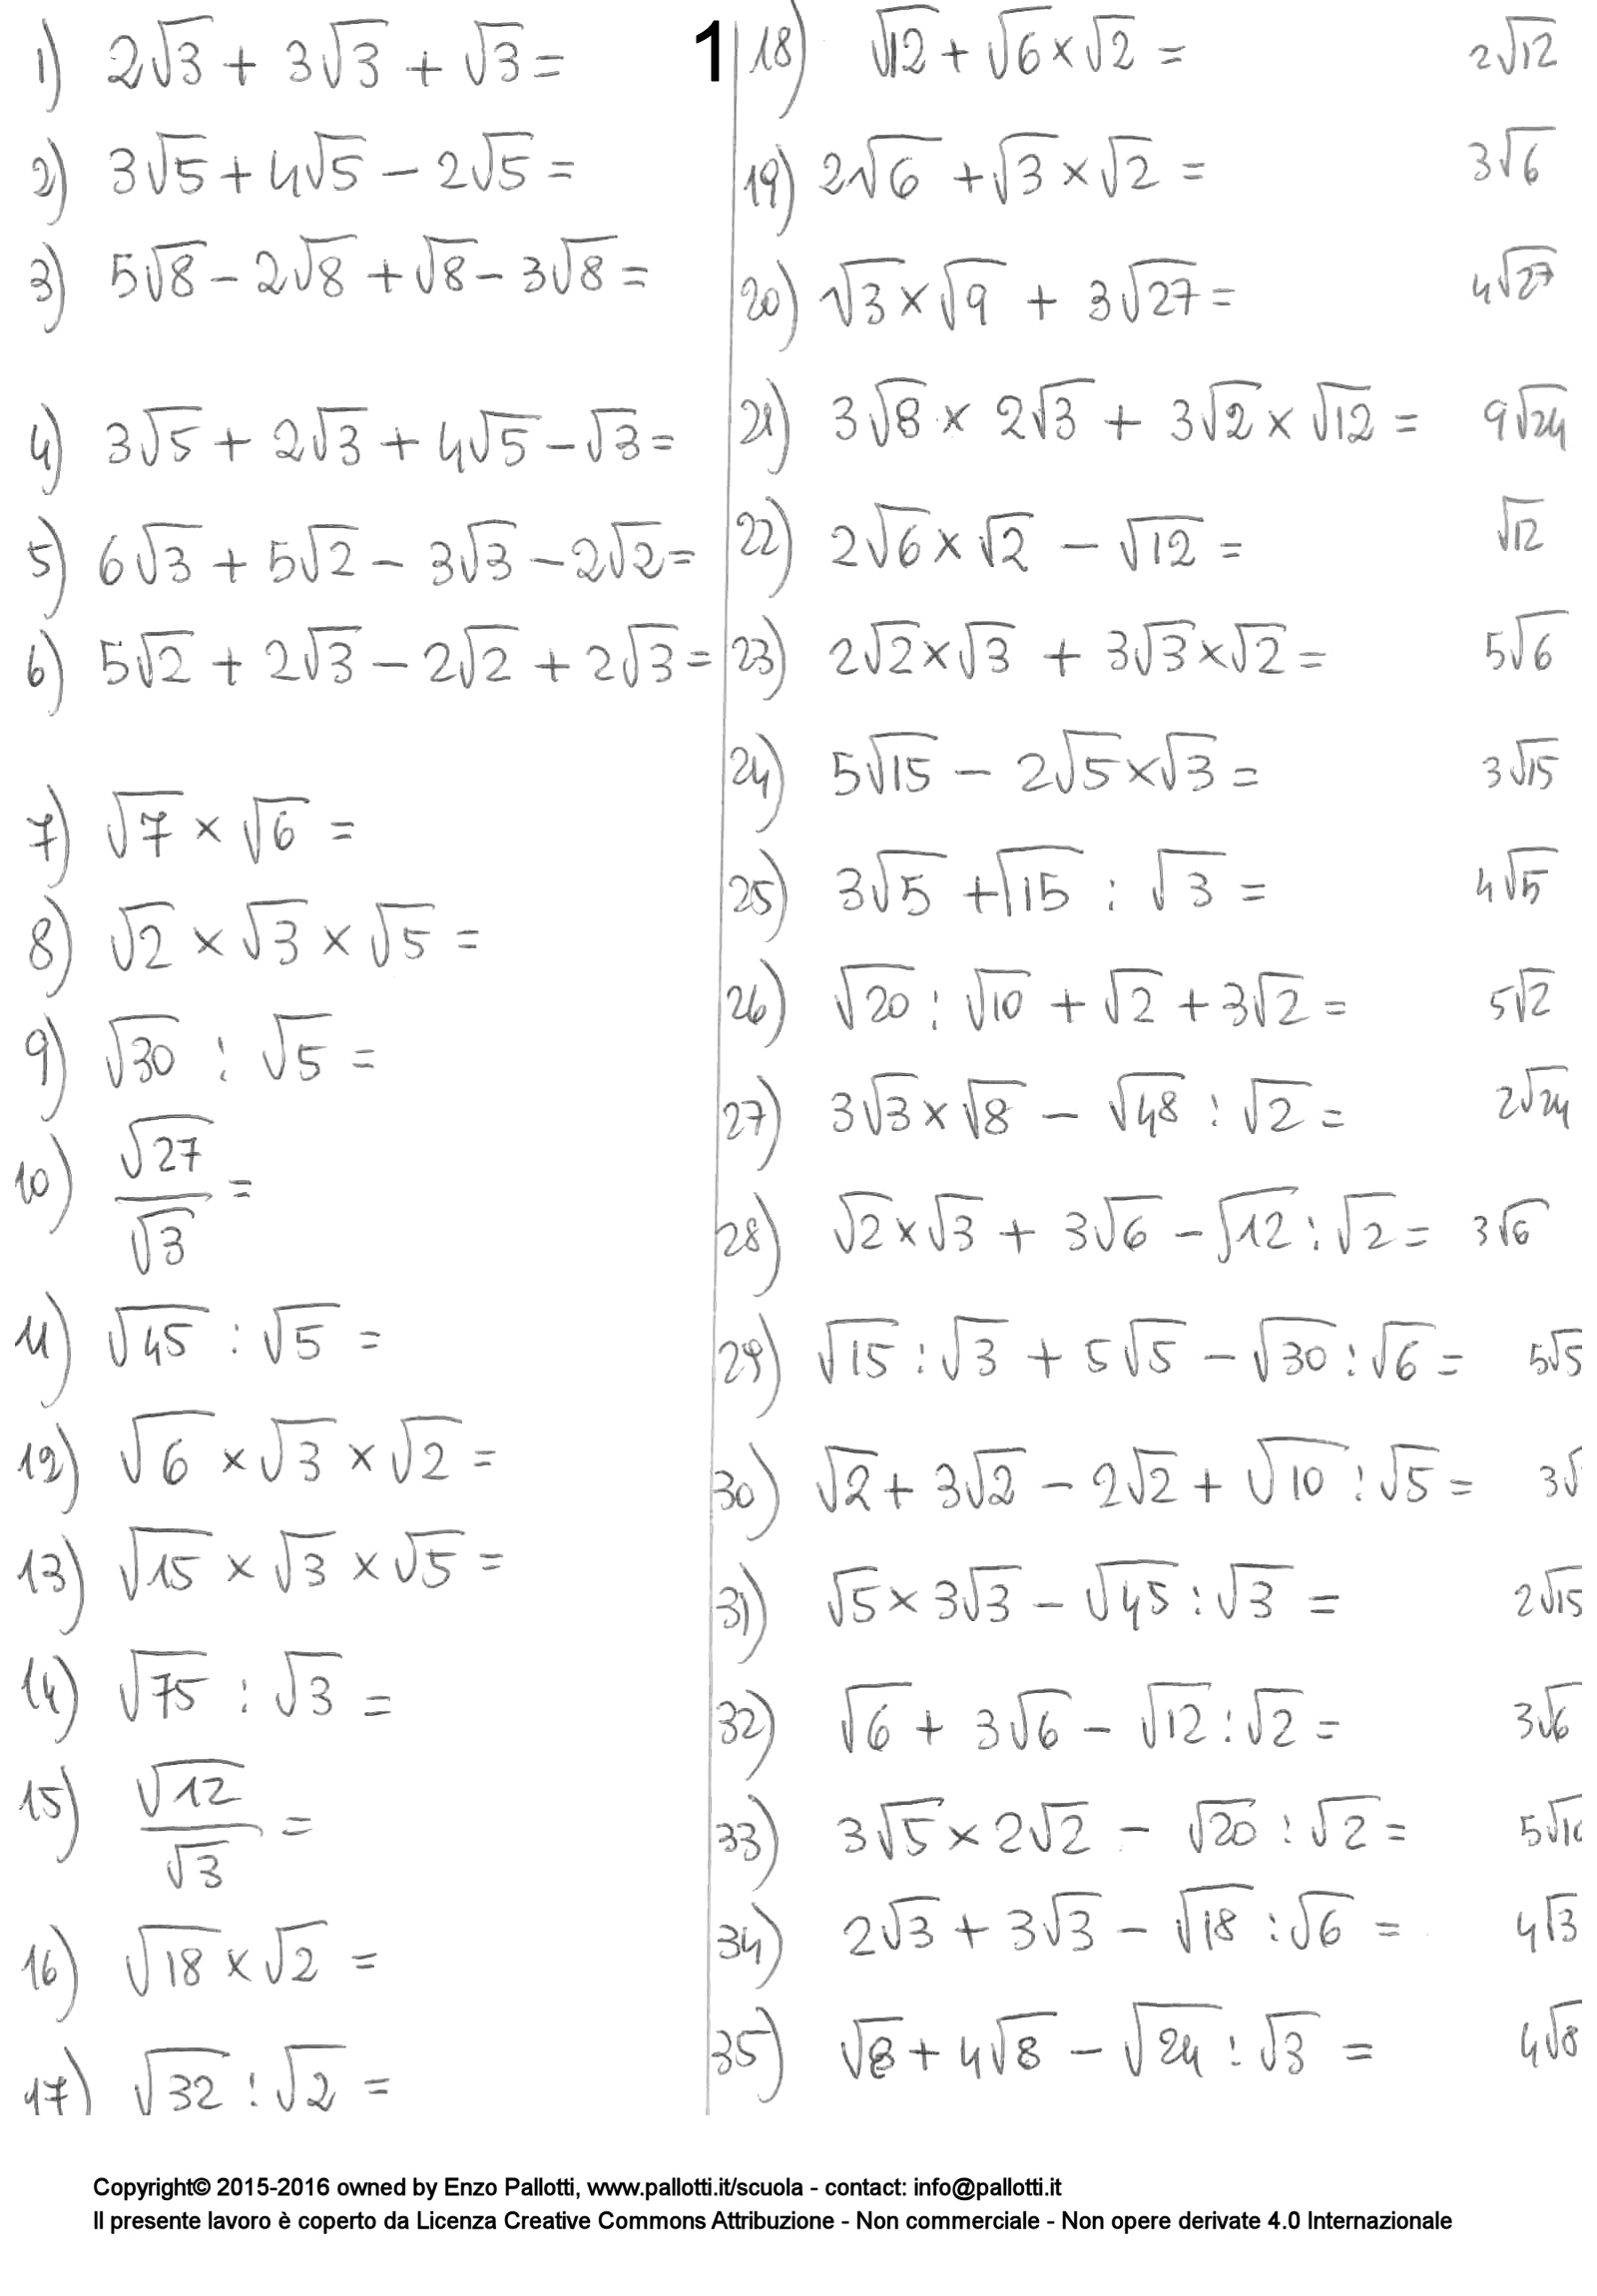 1) 2√3 + 3√3 + √3 =
2) 3√5 + 4√5 − 2√5 =
3) 5√8 − 2√8 + √8 − 3√8 =
4) 3√5 + 2√3 + 4√5 − √3 =
5) 6√3 + 5√2 − 3√3 − 2√2 =
6) 5√2 + 2√3 − 2√2 + 2√3 =
7) √7 × √6 =
8) √2 × √3 × √5 =
9) √30 : √5 =
10) √27 / √3 =
11) √45 : √5 =
12) √6 × √3 × √2 =
13) √15 × √3 × √5 =
14) √75 : √3 =
15) √12 / √3 =
16) √18 × √2 =
17) √32 : √2 =
1
18) √12 + √6 × √2 = 2√12
19) 2√6 + √3 × √2 = 3√6
20) √3 × √9 + 3√27 = 4√27
21) 3√8 × 2√3 + 3√2 × √12 = 9√24
22) 2√6 × √2 − √12 = √12
23) 2√2 × √3 + 3√3 × √2 = 5√6
24) 5√15 − 2√5 × √3 = 3√15
25) 3√5 + √15 : √3 = 4√5
26) √20 : √10 + √2 + 3√2 = 5√2
27) 3√3 × √8 − √48 : √2 = 2√24
28) √2 × √3 + 3√6 − √12 : √2 = 3√6
29) √15 : √3 + 5√5 − √30 : √6 = 5√5
30) √2 + 3√2 − 2√2 + √10 : √5 = 3√
31) √5 × 3√3 − √45 : √3 = 2√15
32) √6 + 3√6 − √12 : √2 = 3√6
33) 3√5 × 2√2 − √20 : √2 = 5√10
34) 2√3 + 3√3 − √18 : √6 = 4√3
35) √8 + 4√8 − √24 : √3 = 4√8
Copyright© 2015-2016 owned by Enzo Pallotti, www.pallotti.it/scuola - contact: info@pallotti.it
Il presente lavoro è coperto da Licenza Creative Commons Attribuzione - Non commerciale - Non opere derivate 4.0 Internazionale